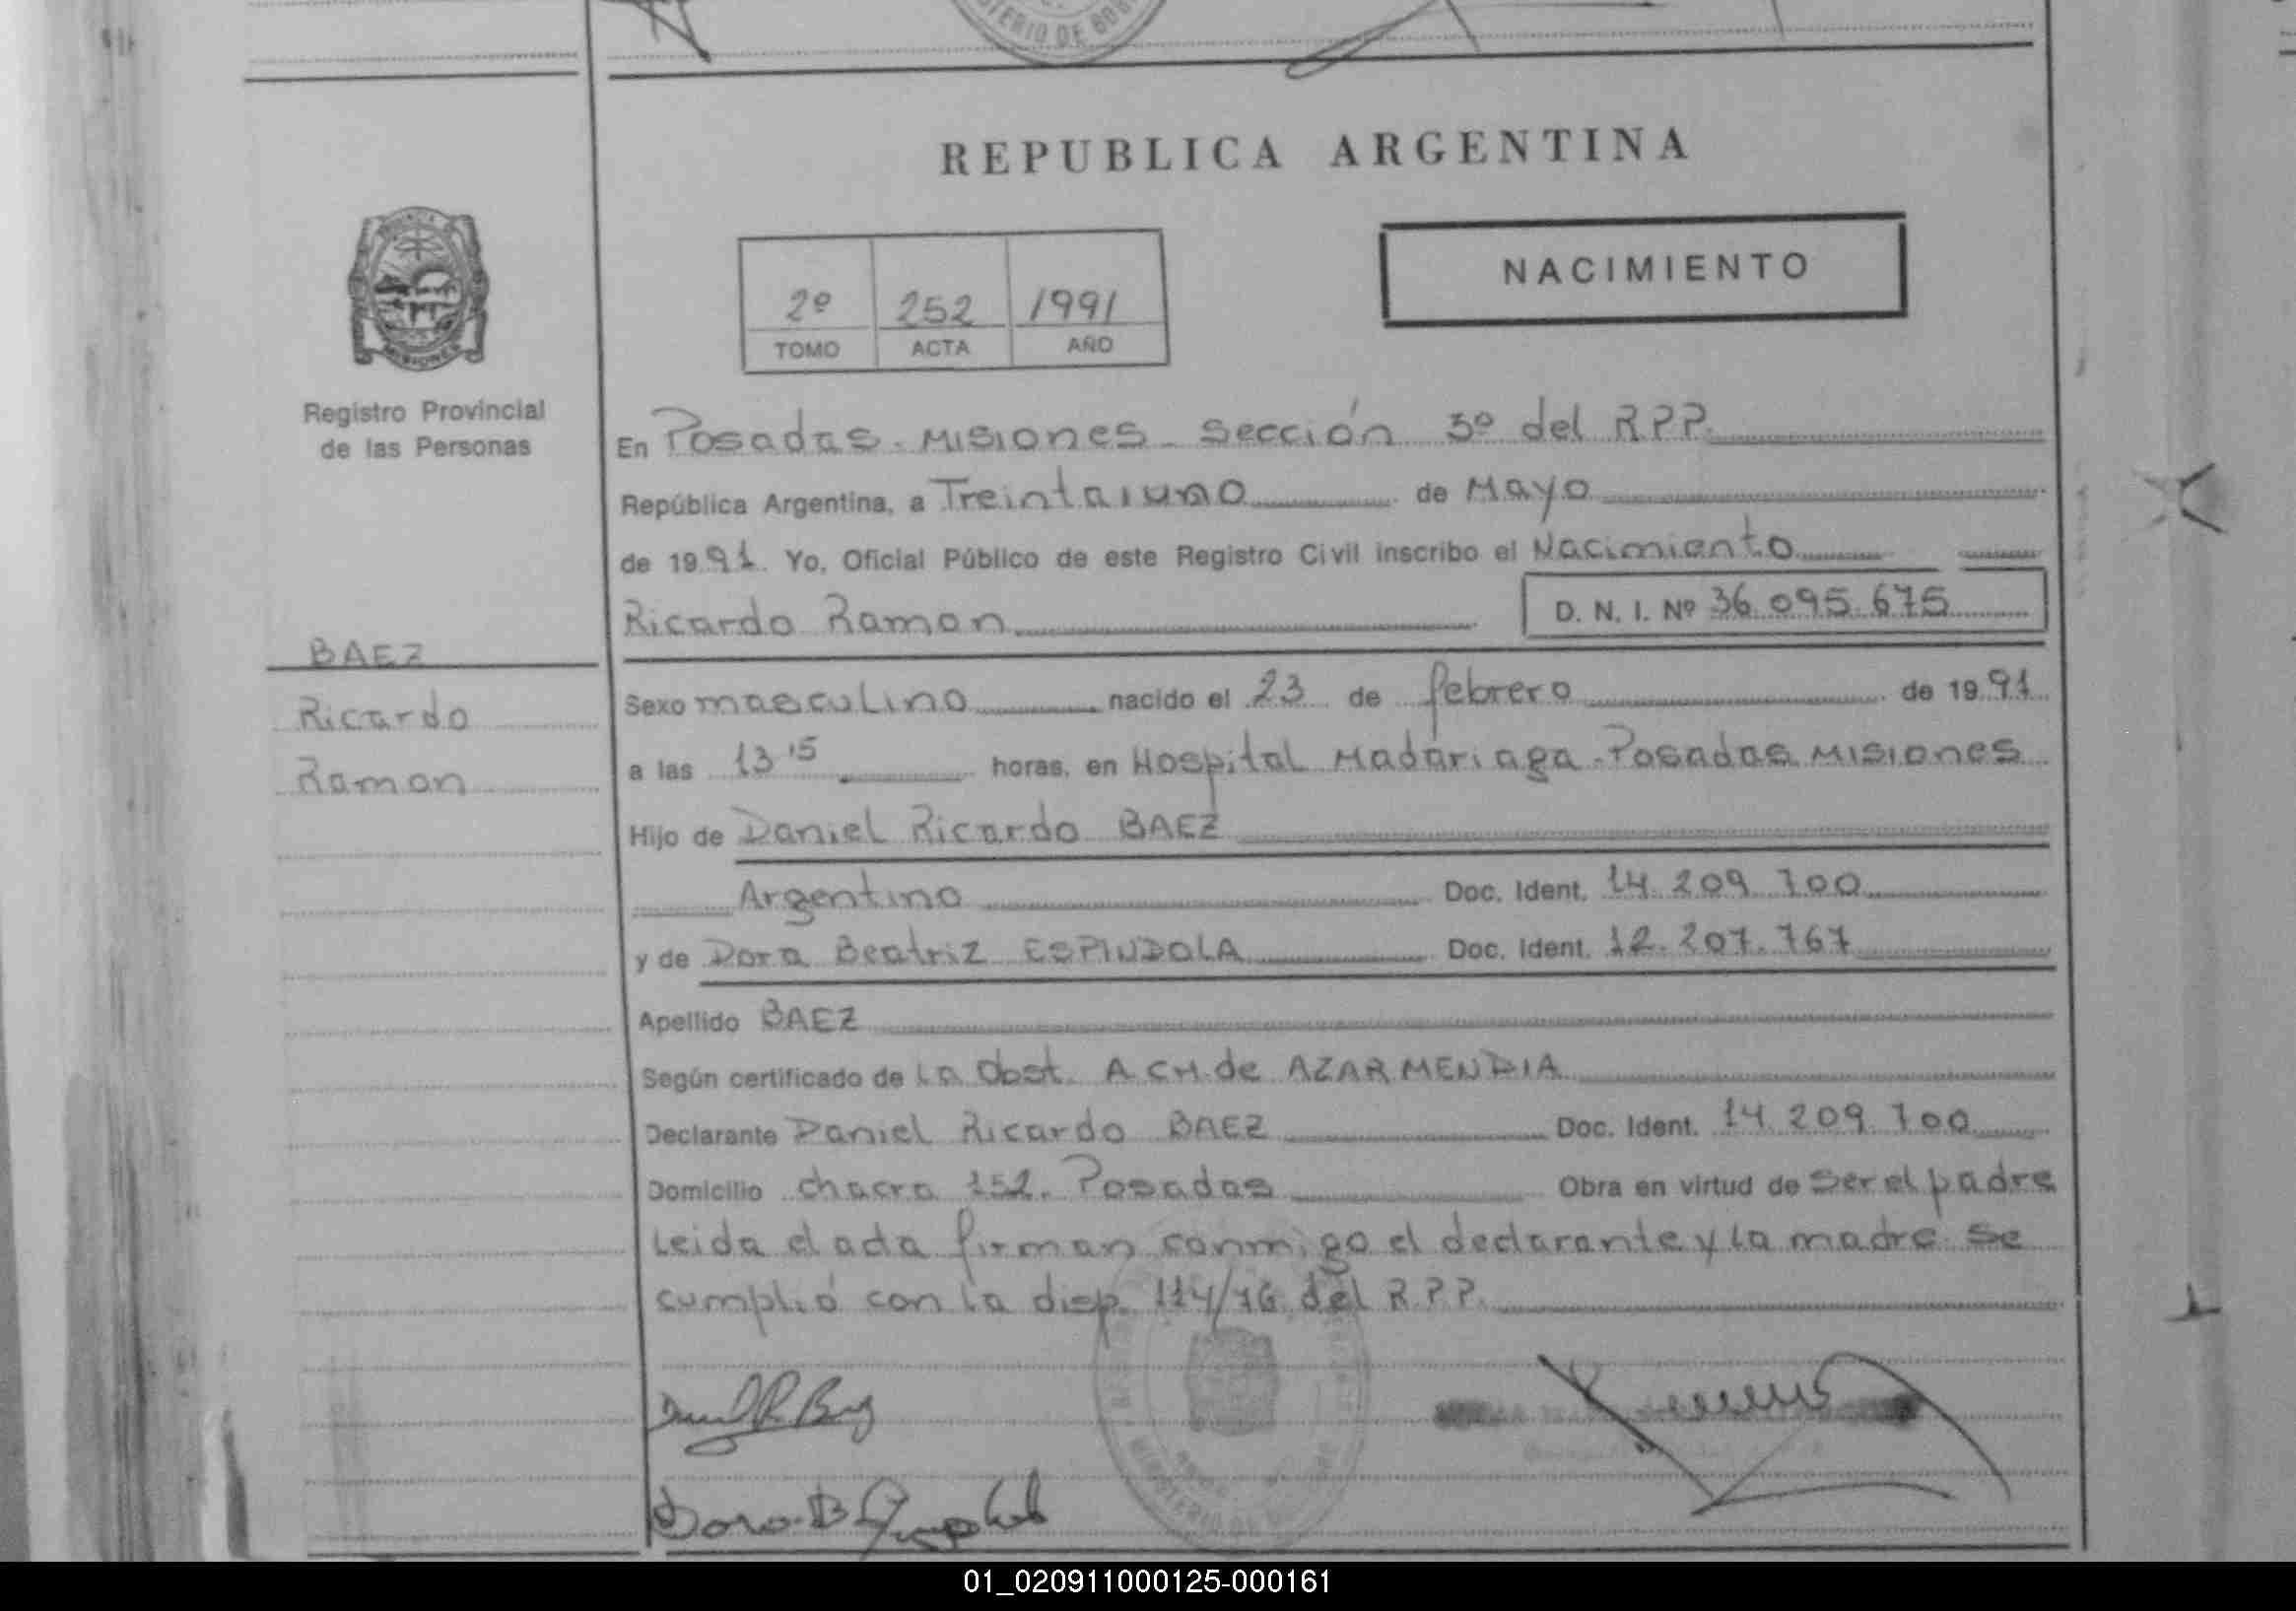 MINISTERIO DE GOB
REPUBLICA ARGENTINA
NACIMIENTO
2º 252 1991
TOMO ACTA AÑO
MISIONES
Registro Provincial
de las Personas
BAEZ
Ricardo
Ramon
En Posadas - Misiones - Sección 3º del R.P.P.
República Argentina, a Treintaiuno de Mayo
de 1991. Yo, Oficial Público de este Registro Civil inscribo el Nacimiento
Ricardo Ramon D. N. I. Nº 36.095.675
Sexo masculino nacido el 23 de febrero de 1991
a las 13 15 horas, en Hospital Madariaga - Posadas Misiones
Hijo de Daniel Ricardo BAEZ
Argentino Doc. Ident. 14.209.700
y de Dora Beatriz ESPINDOLA Doc. Ident. 12.207.767
Apellido BAEZ
Según certificado de La Obst. A CH. de AZARMENDIA
Declarante Daniel Ricardo BAEZ Doc. Ident. 14.209.700
Domicilio chacra 152. Posadas Obra en virtud de ser el padre
Leida el acta firman conmigo el declarante y la madre se
cumplió con la disp. 114/76 del R.P.P.
Daniel R. Baez
Dora B
MINISTERIO DE
01_020911000125-000161